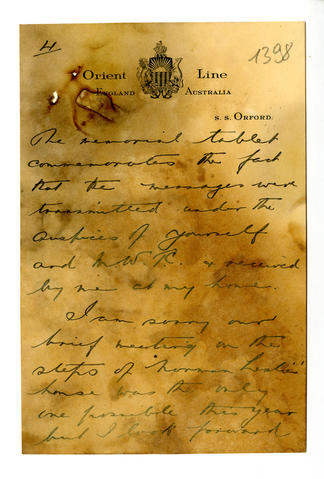 4
1398
Orient Line
England Australia
S. S. Orford.
The memorial tablet
commemorates the fact
that the messages were
transmitted under the
auspices of yourself
and & received
by me at my home.
I am sorry our
brief meeting on the
steps of Norman Leslie's
house was the only
one possible this year
but I look forward